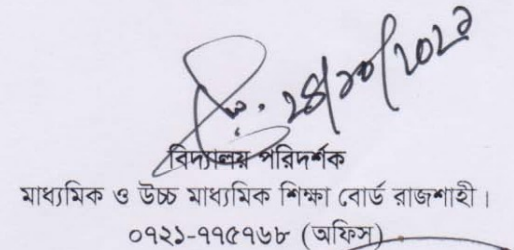 ২৪/১০/২০২১
বিদ্যালয় পরিদর্শক
মাধ্যমিক ও উচ্চ মাধ্যমিক শিক্ষা বোর্ড রাজশাহী।
০৭২১-৭৭৫৭৬৮ (অফিস)